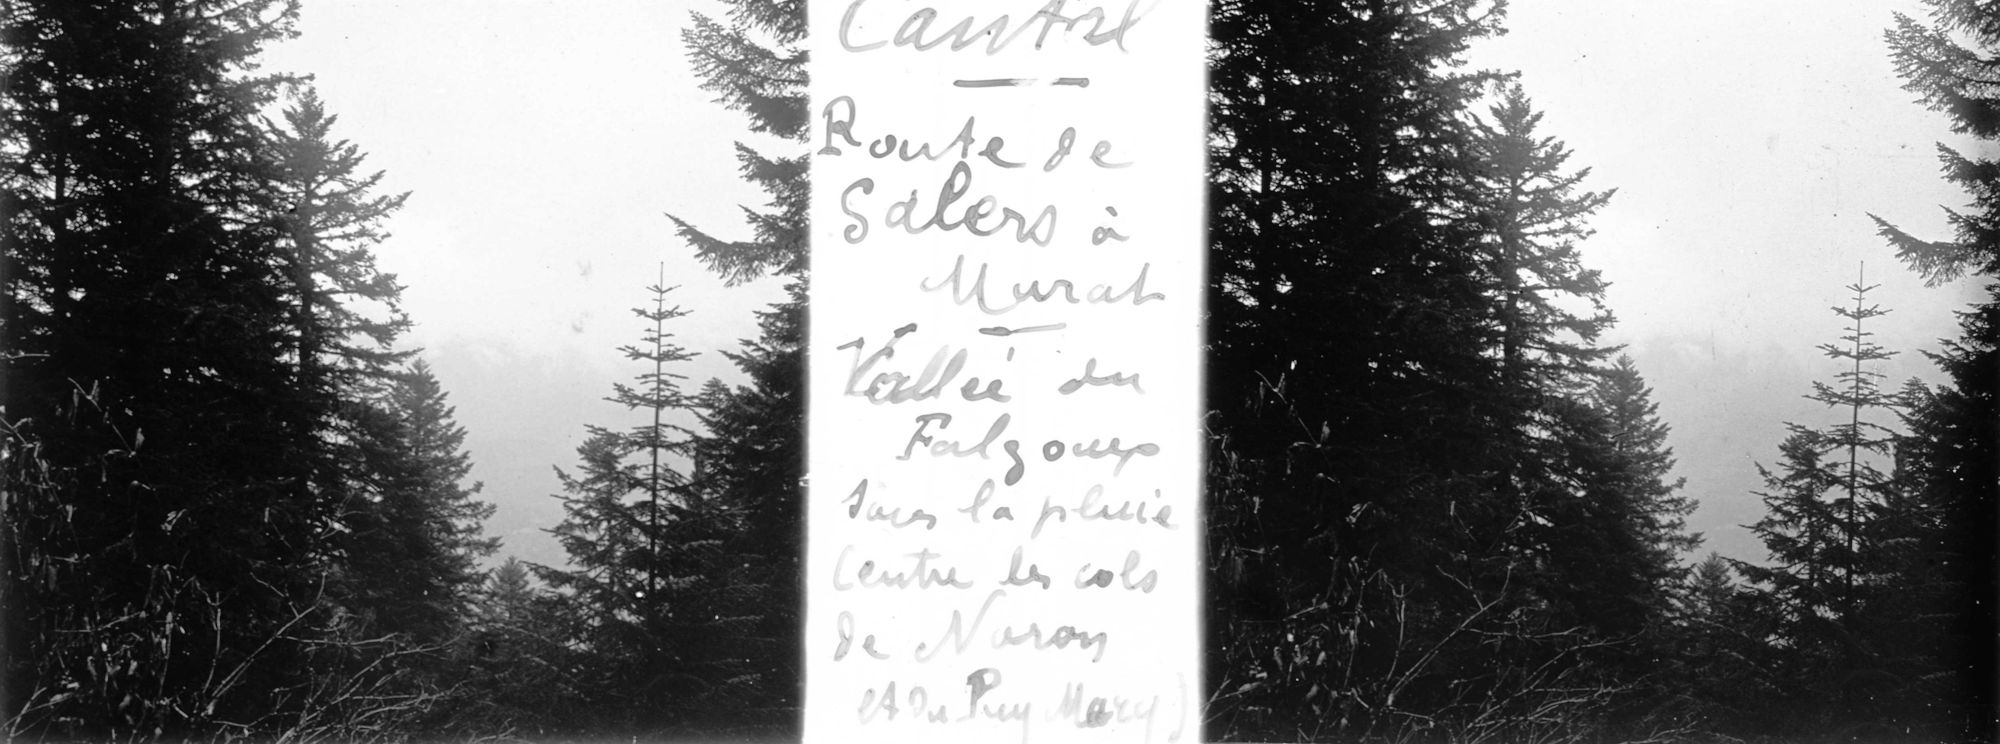 Cantal
Route de
Salers à
Murat
Vallée du
Falgoux
sous la pluie
(entre les cols
de Néron
et du Puy Mary)